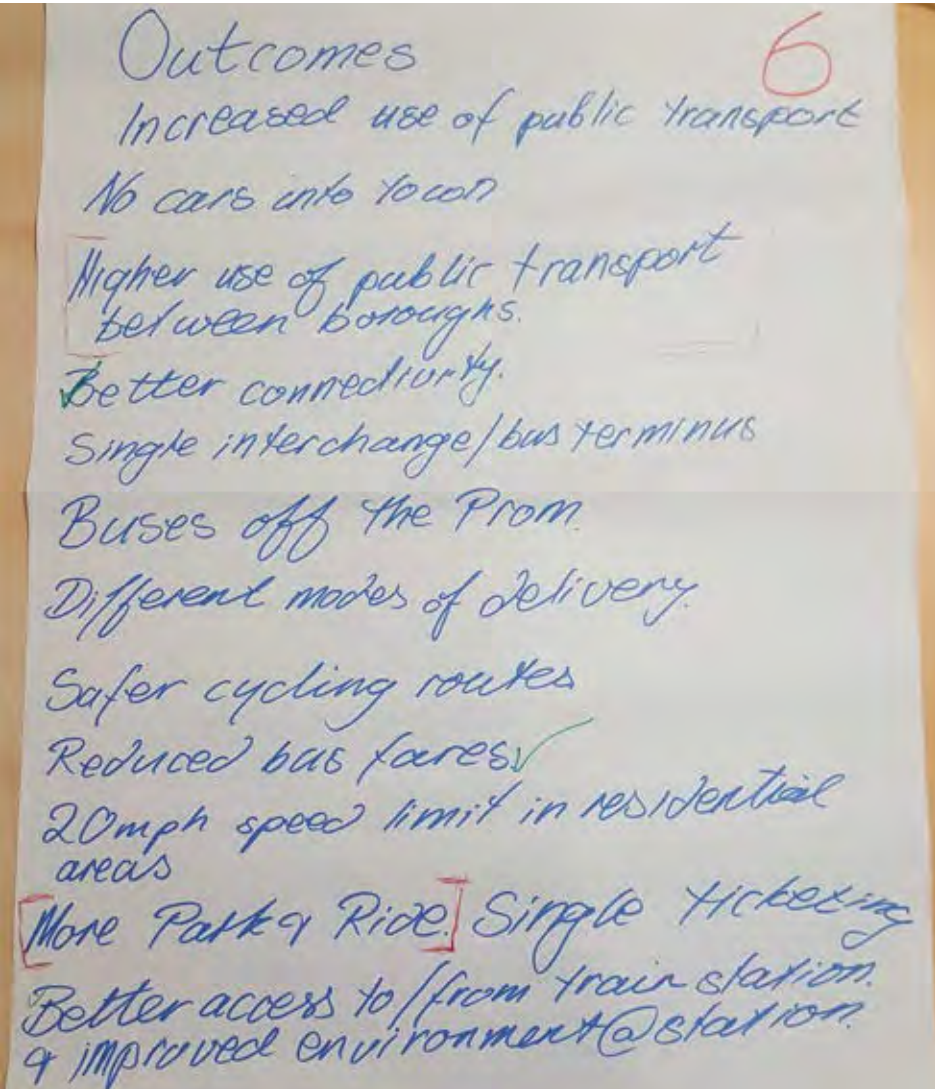 Outcomes 6
Increased use of public transport
No cars into town
Higher use of public transport
between boroughs.
Better connectivity.
Single interchange/bus terminus
Buses off the Prom
Different modes of delivery.
Safer cycling routes
Reduced bus fares
20mph speed limit in residential
areas
[More Park & Ride.] Single ticketing
Better access to/from train station.
& improved environment@station.